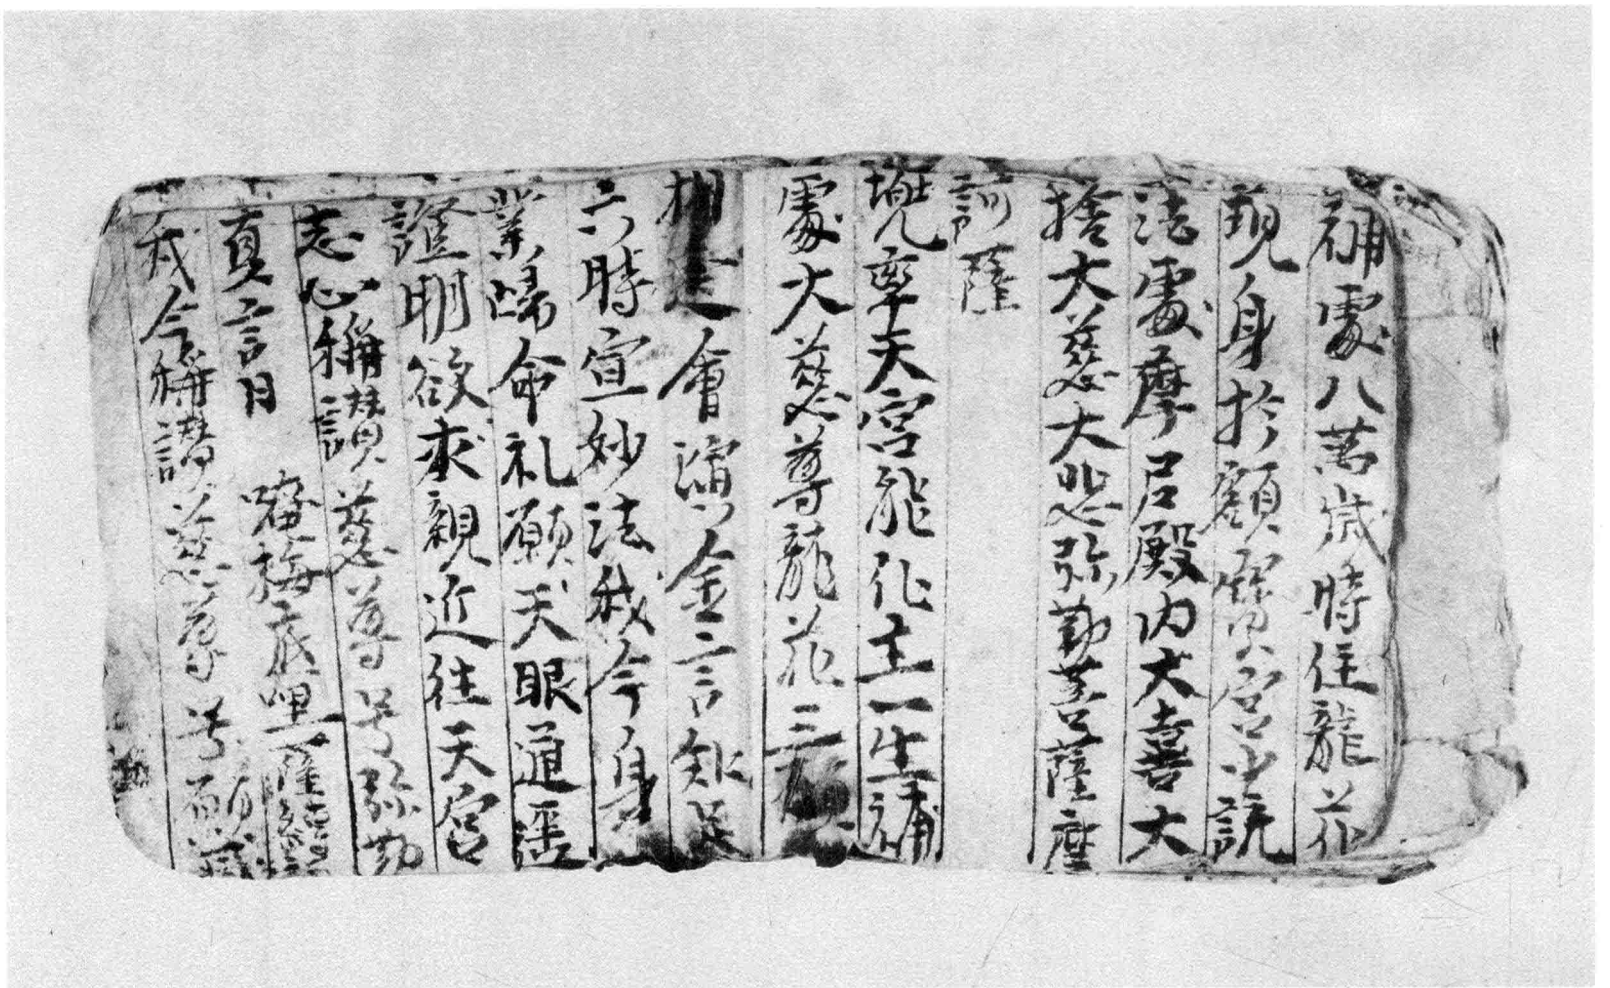 補處八萬歲時住龍花
現身於顧寶宮出說
法處摩尼殿內大喜大
捨大慈大悲弥勒菩薩摩
訶薩
兜率天宮龍化主一生補
處大慈尊龍花三
相逢會演金言知足
六時宣妙法我今身
業歸命礼願天眼遥
證明欲求親近往天宮
志心稱讚慈尊号弥勒
真言曰 唵梅底哩薩
我今稱讚慈尊号願滅